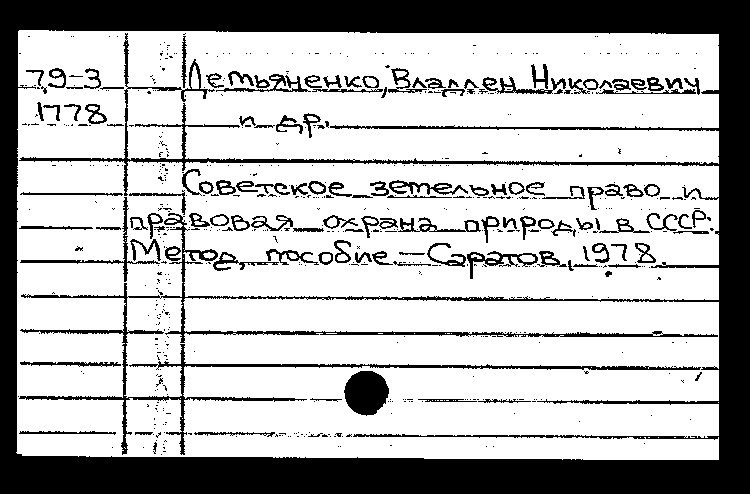 79-3 Демьяненко, Владлен Николаевич
1778 и др.
Советское земельное право и
правовая охрана природы в СССР:
Метод. пособие. — Саратов, 1978.